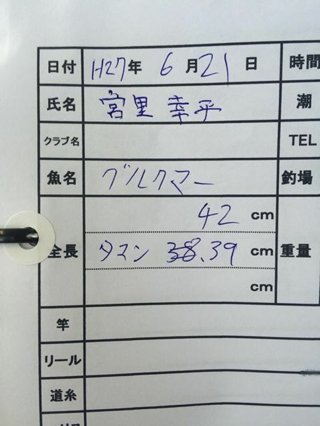 日付 H27年 6月21日 時間
氏名 宮里 幸平 潮
クラブ名 TEL
魚名 グルクマー 釣場
42 cm
全長 タマン 38.39 cm 重量
cm
竿
リール
道糸